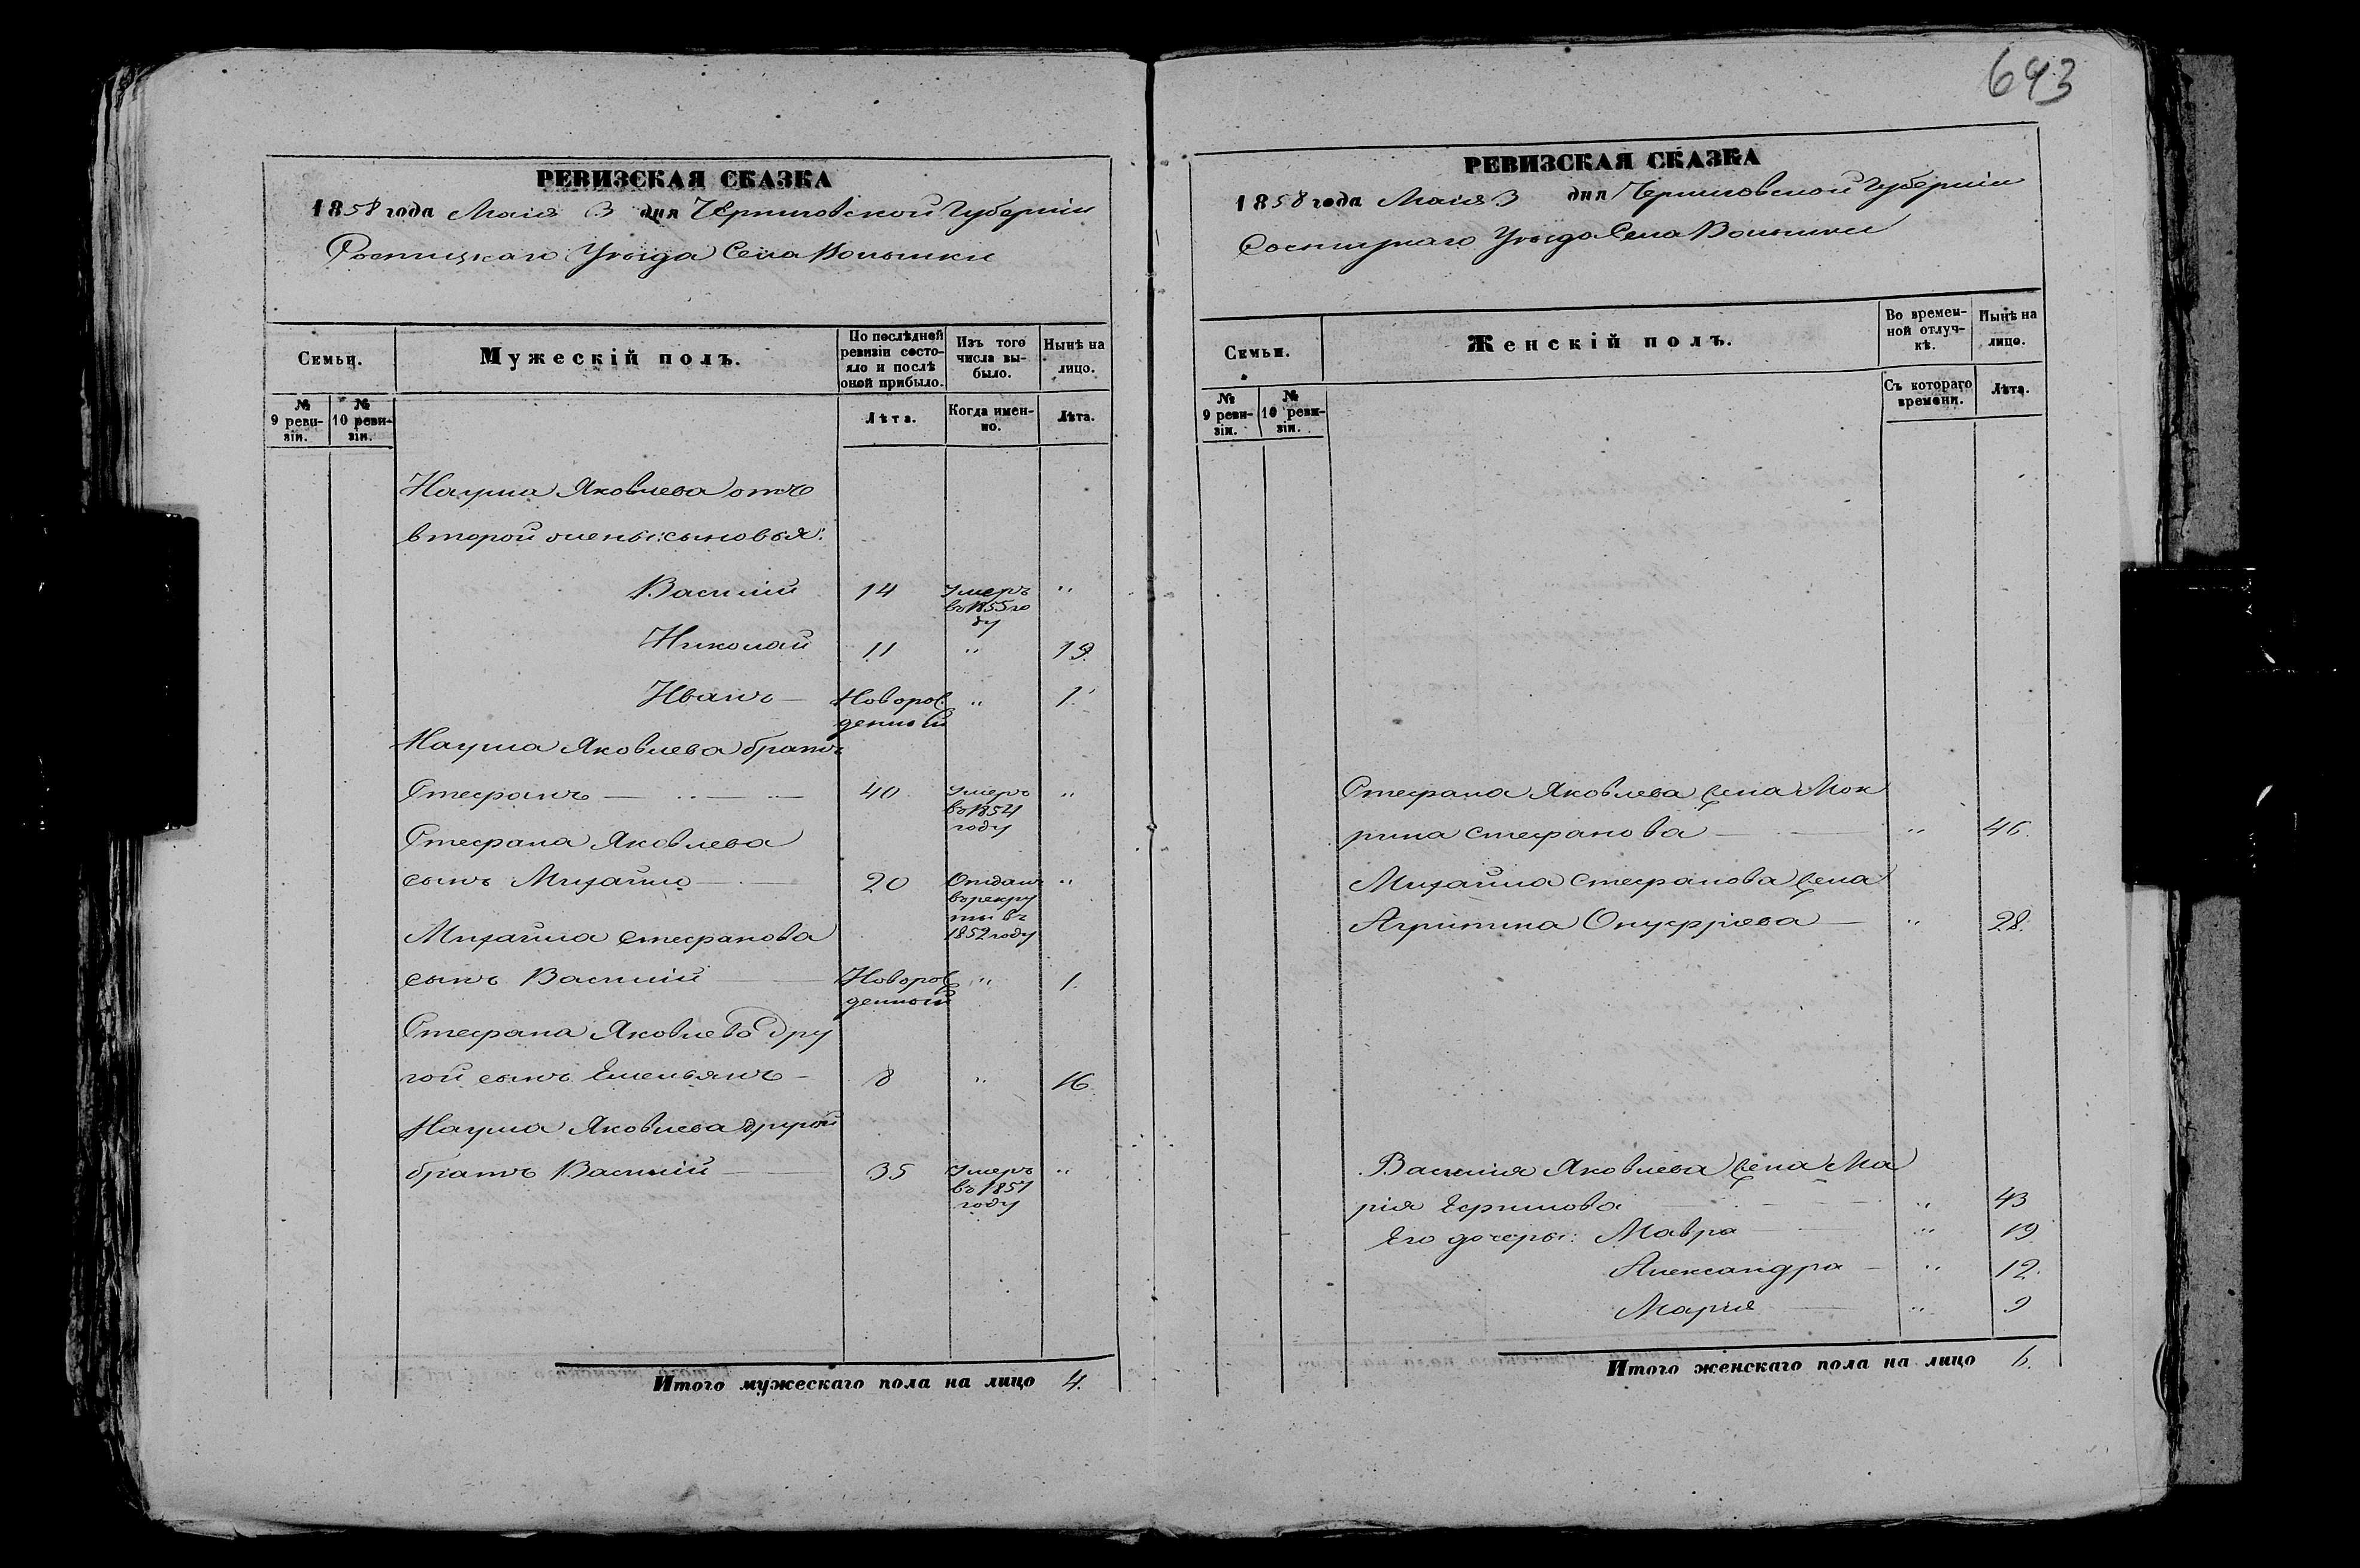 693
РЕВИЗСКАЯ СКАЗКА
1858 года Маія 3 дня Черниговской Губерніи
Сосницкаго Уѣзда Села Волынки
Семьи.
Мужескій полъ.
По послѣдней ревизіи состо-
яло и послѣ
оной прибыло.
Изъ того
числа вы-
было.
Нынѣ на
лицо.
№
9 реви-
зіи.
№
10 реви-
зіи.
Лѣта.
Когда имен-
но.
Лѣта.
Наума Яковлева отъ
второй жены: сыновья:
Василій 14 Умеръ
въ 1855 го
ду "
Николай 11 " 19.
Иванъ — Новорож
денный " 1.
Наума Яковлева братъ
Стефанъ — 40 Умеръ
въ 1854
году "
Стефана Яковлева
сынъ Михайло — 20 Отданъ
въ рекру
ты въ
1852 году "
Михайла Стефанова
сынъ Василій Новорож
денный " 1.
Стефана Яковлева дру
гой сынъ Емельянъ — 8 " 16
Наума Яковлева другой
братъ Василій — 35 Умеръ
въ 1851
году "
Итого мужескаго пола на лицо 4.
РЕВИЗСКАЯ СКАЗКА
1858 года Маія 3 дня Черниговской Губерніи
Сосницкаго Уѣзда Села Волынки
Семьи.
Женскій полъ.
Во времен-
ной отлуч-
кѣ.
Нынѣ на
лицо.
№
9 реви-
зіи.
№
10 реви-
зіи.
Съ котораго
времени.
Лѣта.
Стефана Яковлева жена Мок
рина Стефанова — " 46.
Михайла Стефанова жена
Агрипина Онуфріева — " 28.
Василія Яковлева жена Ма
рія Ефимова " 43
Его дочеры: Мавра — " 19
Александра — " 12.
Марія — " 9
Итого женскаго пола на лицо 6.